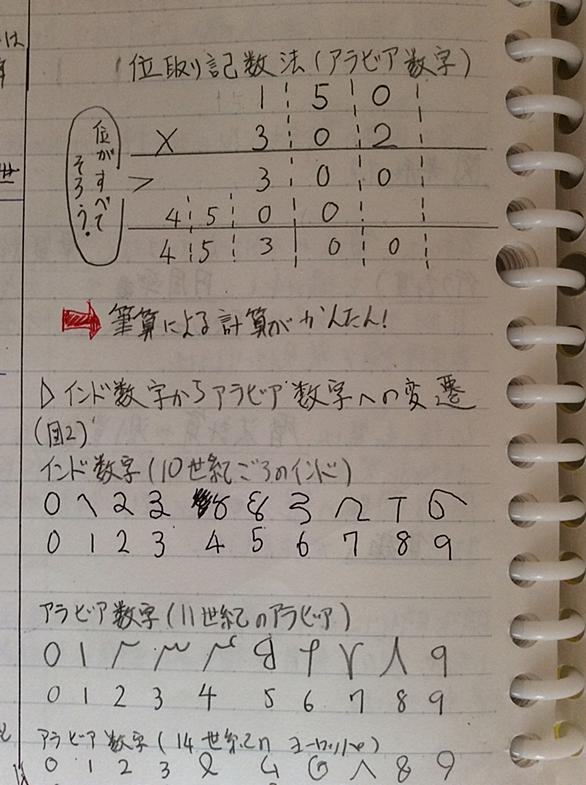 位取り記数法(アラビア数字)
1 5 0
× 3 0 2
位がすべて
そろう。
3 0 0
4 5 0 0
4 5 3 0 0
筆算による計算がかんたん!
▷インド数字からアラビア数字への変遷
(図2)
インド数字(10世紀ごろのインド)
0 1 2 3 4 5 6 7 8 9
アラビア数字(11世紀のアラビア)
0 1 2 3 4 5 6 7 8 9
アラビア数字(14世紀のヨーロッパ)